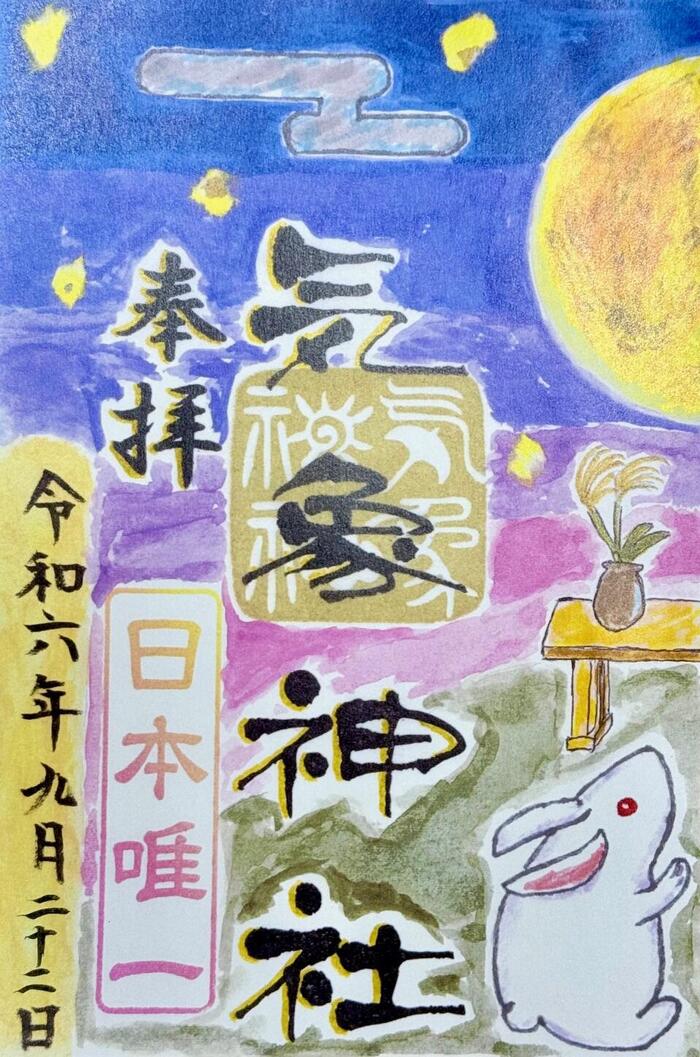 気象神社
気象神社
奉拝
日本唯一
令和六年九月二十二日